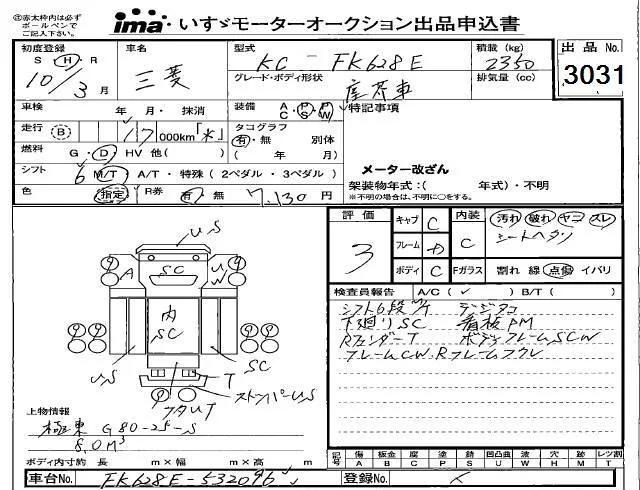 ㊟赤太枠内は必ず
ボールペンで
ご記入下さい。
ima いすゞモーターオークション出品申込書
初度登録 車名 型式 積載(kg) 出品No.
S H・R 三菱 KC-FK628E 2350
10年3月 グレード・ボディ形状 排気量(cc) 3031
塵芥車
車検 年 月・抹消 装備 AC・PS・PW 特記事項
走行 B 17 000km「*」 タコグラフ
有・無 別体
燃料 G・D・HV 他( ) ( 年 月)
シフト 6 M/T・A/T・特殊(2ペダル・3ペダル) メーター改ざん
架装物年式:( 年式)・不明
色 指定 R券 有 無 7,130円 ※不明の場合は、不明に○をする。
評価 キャブ C 内装 汚れ 破れ ヤコ スレ
3 フレーム C シートヘタリ
ボディ C Fガラス 割れ 線 点傷 イバリ
検査員報告 A/C( ✓ ) B/T( )
シフト6段M/T デジタコ
下廻りSC 看板PM
RフェンダーT ボディフレームSCW
フレームCW.Rフレーム
US
A SC U W
内
SC
US SC
T
ストッパーUS
フタUT
上物情報
極東 G80-25-S
8.0M³
ボディ内寸約 長 m×幅 m×高 m
記号 傷 板金 腐 塗 錆 凹 凸 曲 波 穴 跡 レツ割
A B C P S U W H M T
車台No. FK628E-532096 登録No.